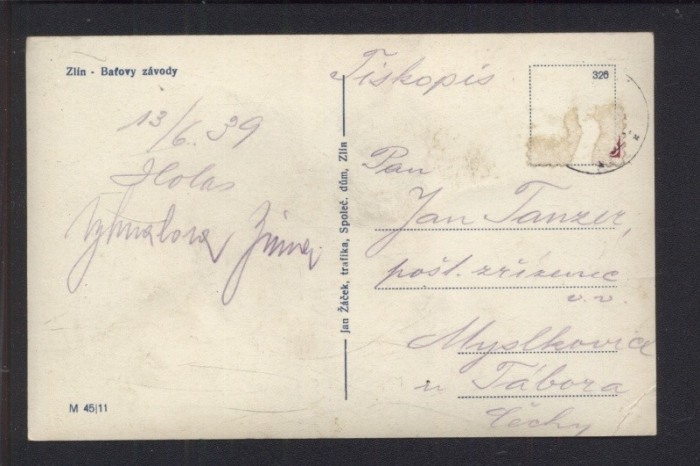 Zlín - Baťovy závody
Tiskopis
320
13/6.39
Holas
Pan
Jan Tanzer,
pošt. zřízenec
v.v.
Myslkovice
u Tábora
Čechy
Jan Žáček, trafika, Společ. dům, Zlín
M 45|11